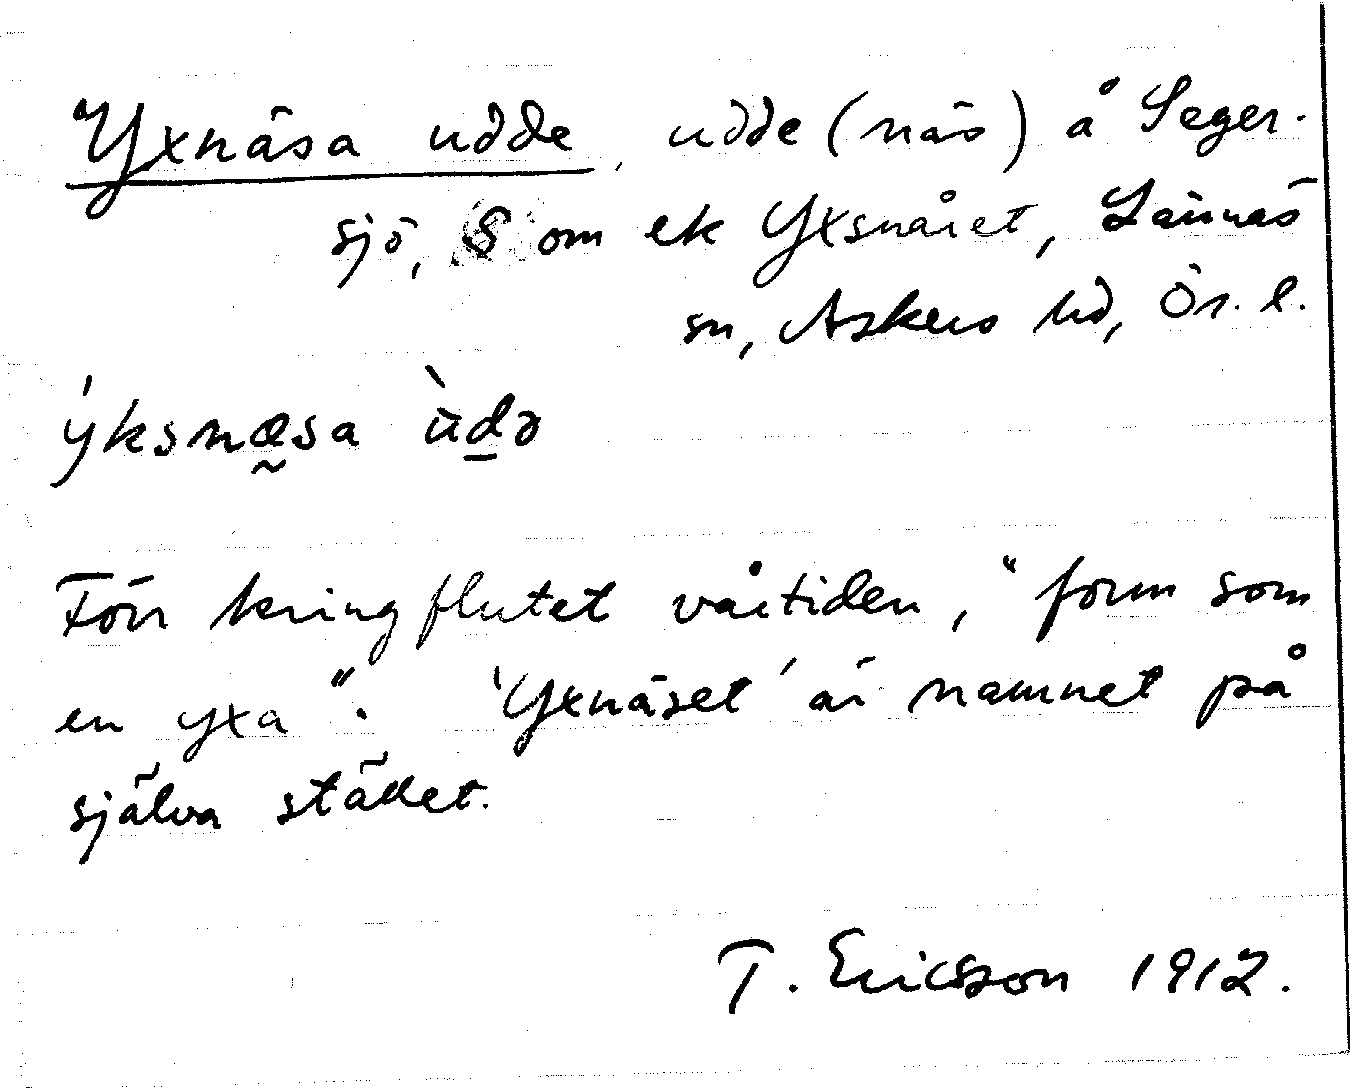 Yxnäsa udde, udde (näs) å Seger-
sjö, S om ek Yxsnåret, Lännäs
sn, Askers hd, Ör. l.
ýksnæ̰sa ùd̲ə
Förr kringflutet vårtiden, "form som
en yxa". 'Yxnäset' är namnet på
själva stället.
T. Ericsson 1912.